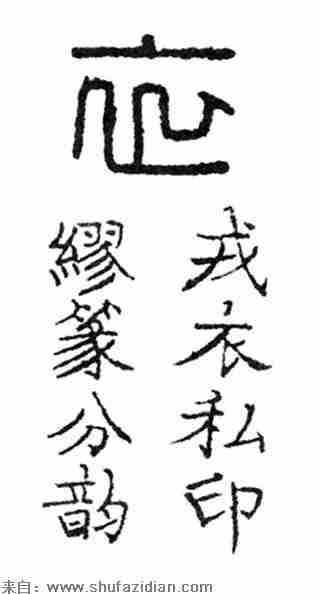 衣
戎衣私印
繆篆分韵
来自：www.shufazidian.com